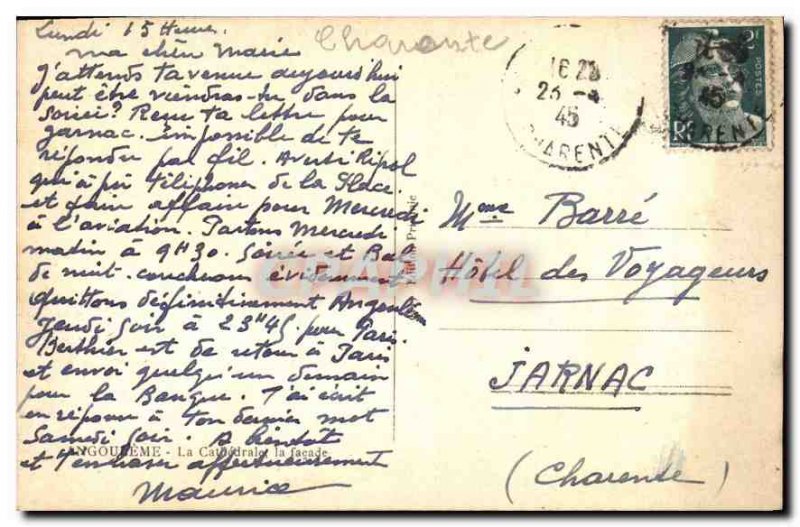 Lundi 15 Heures.
ma chère Marie
J'attends ta venue aujourd'hui
peut être viendras-tu dans la
soirée? Reçu ta lettre pour
Jarnac. impossible de te
répondre par fil. Averti Ripol
qui à pu téléphoner de la Place
et faire affaire pour Mercredi
à l'aviation. Partons Mercredi
matin à 9H30. Soirée et Bal
de nuit. coucheons évidemment
quittons définitivement Angoulème
Jeudi soir à 23H45 pour Paris.
Berthier est de retour à Paris
et envoi quelqu'un demain
pour la Banque. T'ai écrit
en réponse à ton dernier mot
Samedi soir. A bientôt
ANGOULÊME - La Cathédrale, la façade
et t'embrasse affectueusement
Maurice
Charente
16 23
23 -4
45
CHARENTE
2F
POSTES
RF
45
Edition Présidale
CPAPHIL
Mme Barré
Hôtel des Voyageurs
JARNAC
(Charente)